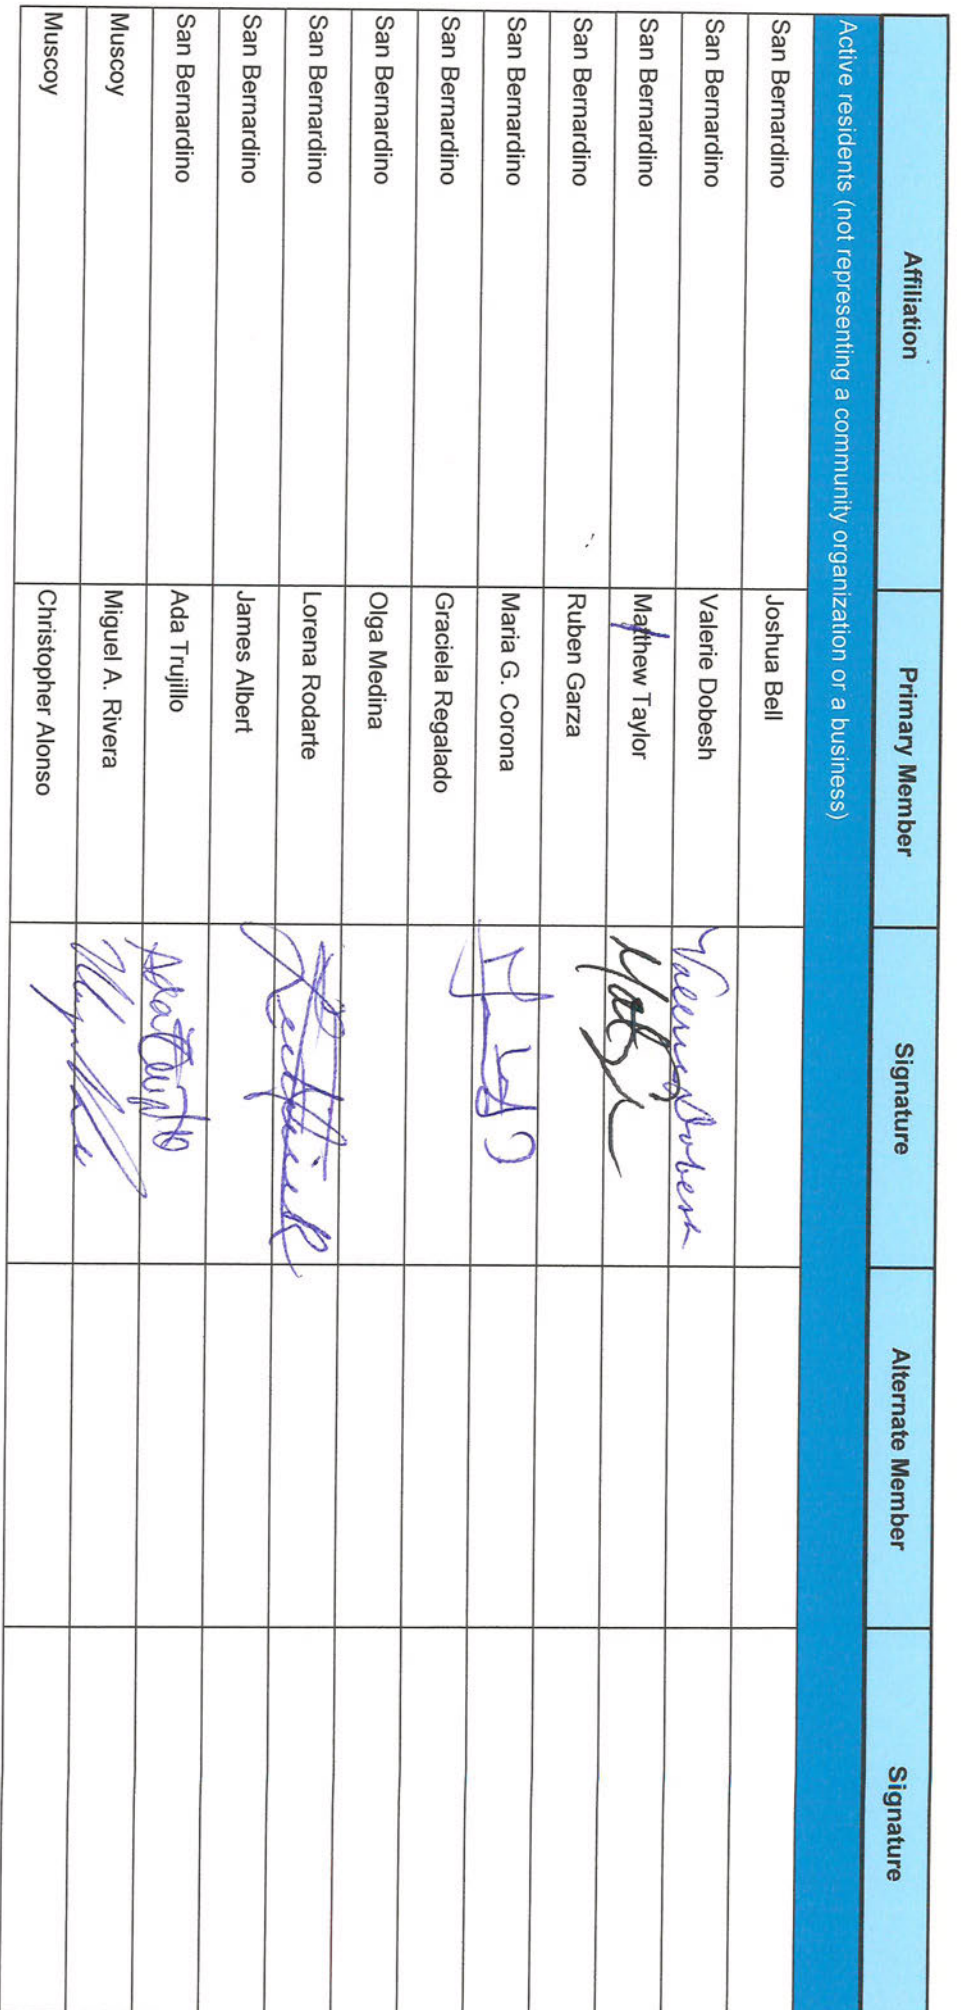 Affiliation Primary Member Signature Alternate Member Signature
Active residents (not representing a community organization or a business)
San Bernardino Joshua Bell
San Bernardino Valerie Dobesh Valerie Dobesh
San Bernardino Matthew Taylor
San Bernardino Ruben Garza
San Bernardino Maria G. Corona
San Bernardino Graciela Regalado
San Bernardino Olga Medina
San Bernardino Lorena Rodarte
San Bernardino James Albert
San Bernardino Ada Trujillo
Muscoy Miguel A. Rivera
Muscoy Christopher Alonso